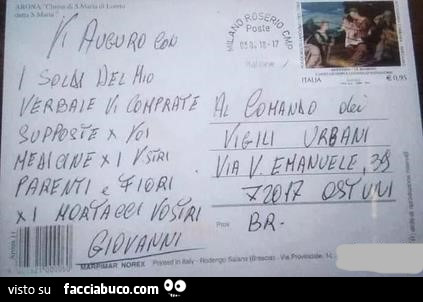 ARONA "Chiesa di S.Maria di Loreto
detta S.Maria"
VI AUGURO CON
I SOLDI DEL MIO
VERBALE VI COMPRATE
SUPPOSTE X VOI
MEDICINE X I VSTRI
PARENTI e FIORI
X I MORTACCI VOSTRI
GIOVANNI
MILANO ROSERIO CMP
Poste
ITALIA
€ 0,95
AL COMANDO dei
VIGILI URBANI
VIA V. EMANUELE, 39
72017 OSTUNI
Prov.
BR-
MARPIMAR NOREX
Printed in Italy - Rodengo Saiano (Brescia) - Via Provinciale,
visto su facciabuco.com